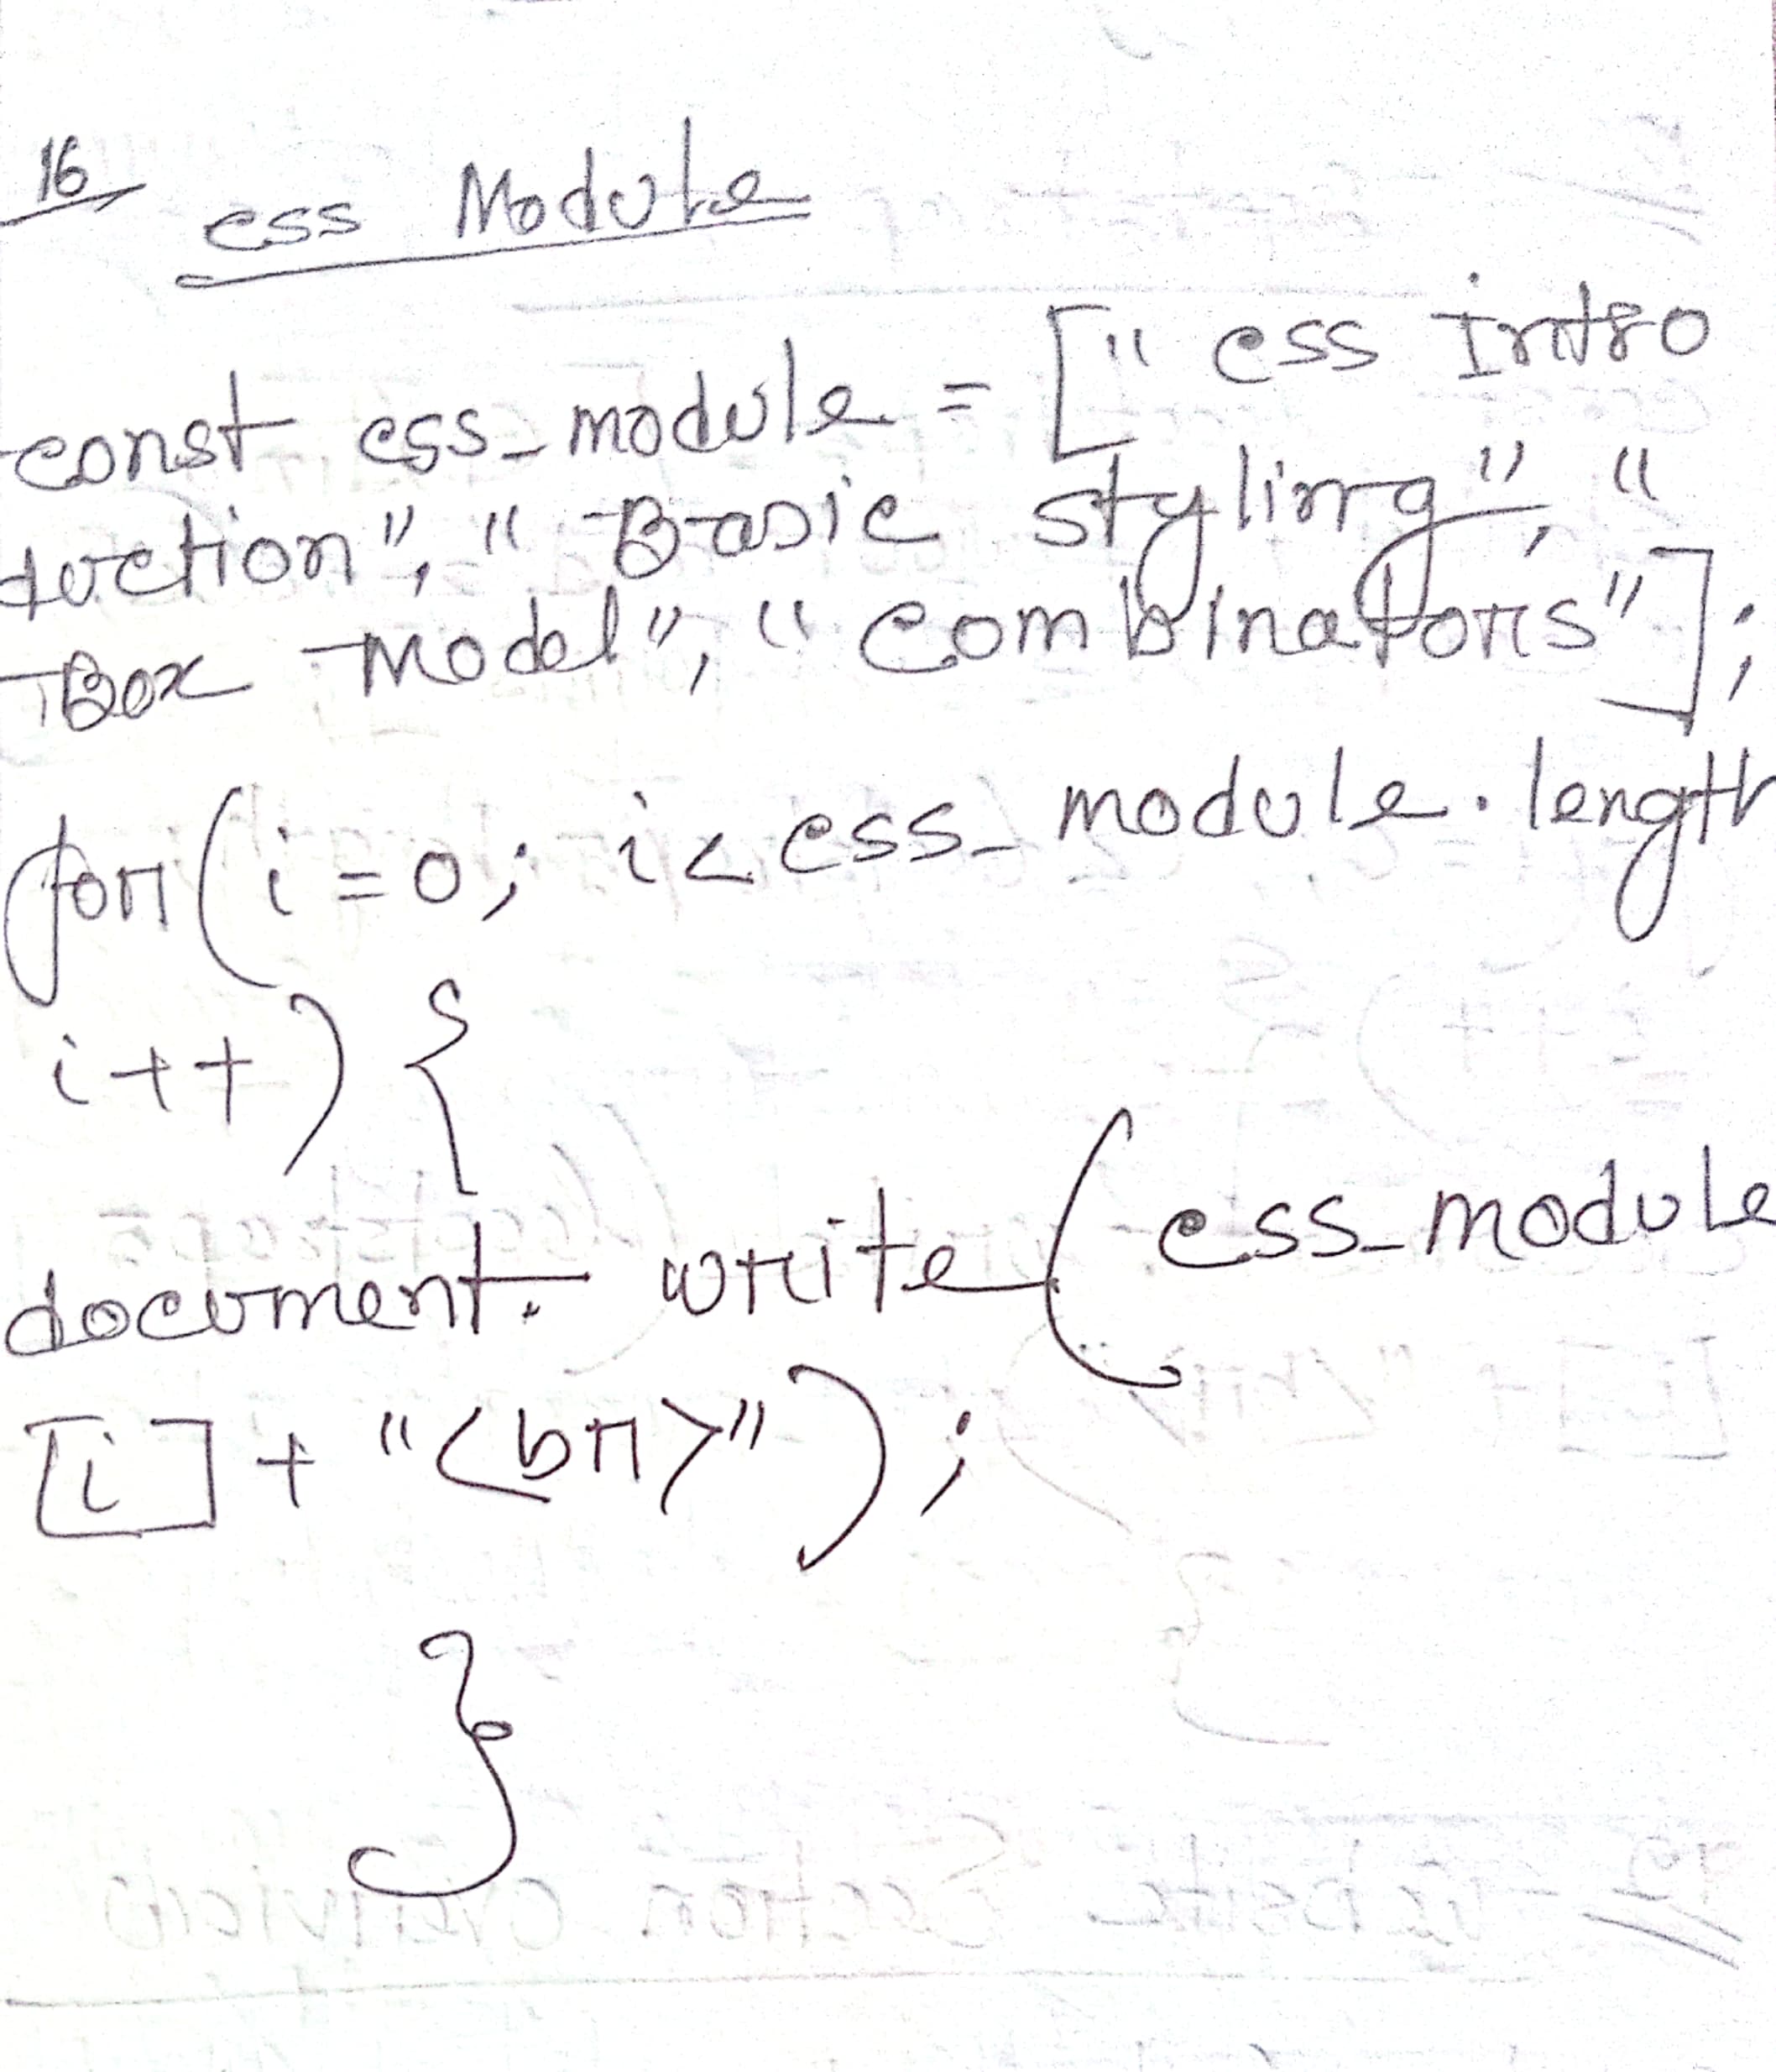 16
css Module
const css_module = ["css Intro
duction", "Basic styling", "
Box Model", "Combinators"];
for(i=0; i<css_module.length
i++) {
document.write(css_module
[i] + "<br>");
}